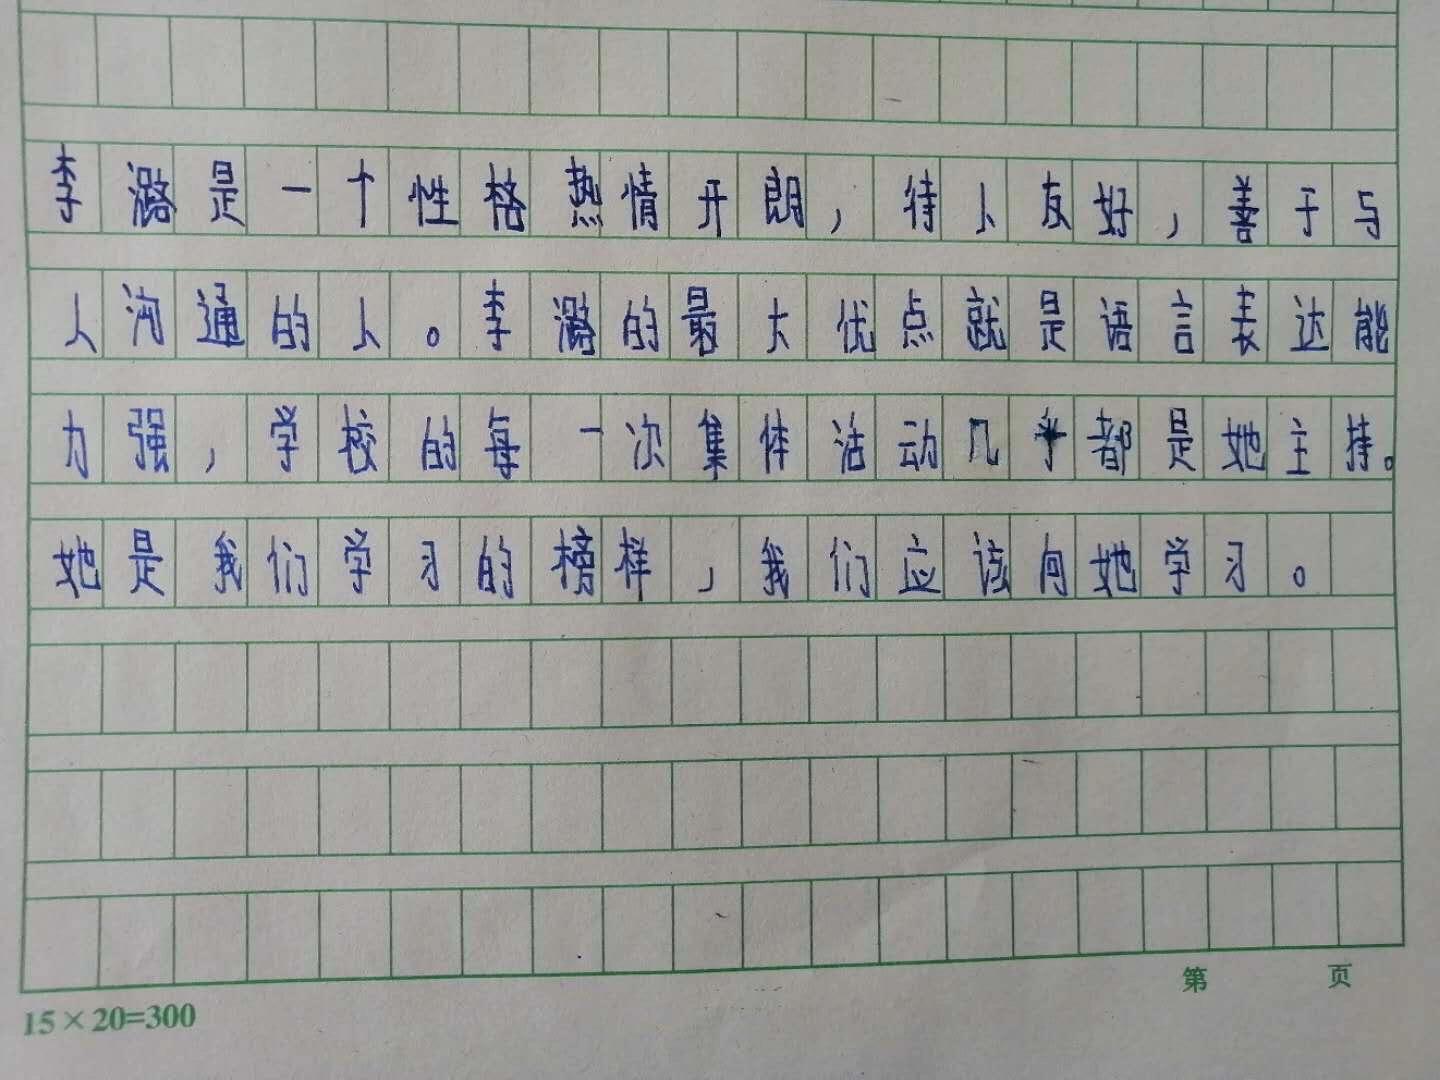 李潞是一个性格热情开朗，待人友好，善于与
人沟通的人。李潞的最大优点就是语言表达能
力强，学校的每一次集体活动几乎都是她主持。
她是我们学习的榜样，我们应该向她学习。
第 页
15×20=300